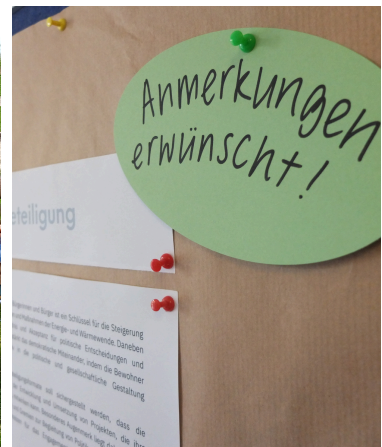 Anmerkungen
erwünscht!
eteiligung
und Bürger ist ein Schlüssel für die Steigerung
und Maßnahmen der Energie- und Wärmewende. Daneben
und Akzeptanz für politische Entscheidungen und
das demokratische Miteinander, indem die Bewohner
in die politische und gesellschaftliche Gestaltung
soll sichergestellt werden, dass die
und Umsetzung von Projekten, die ihre
Besonderes Augenmerk liegt